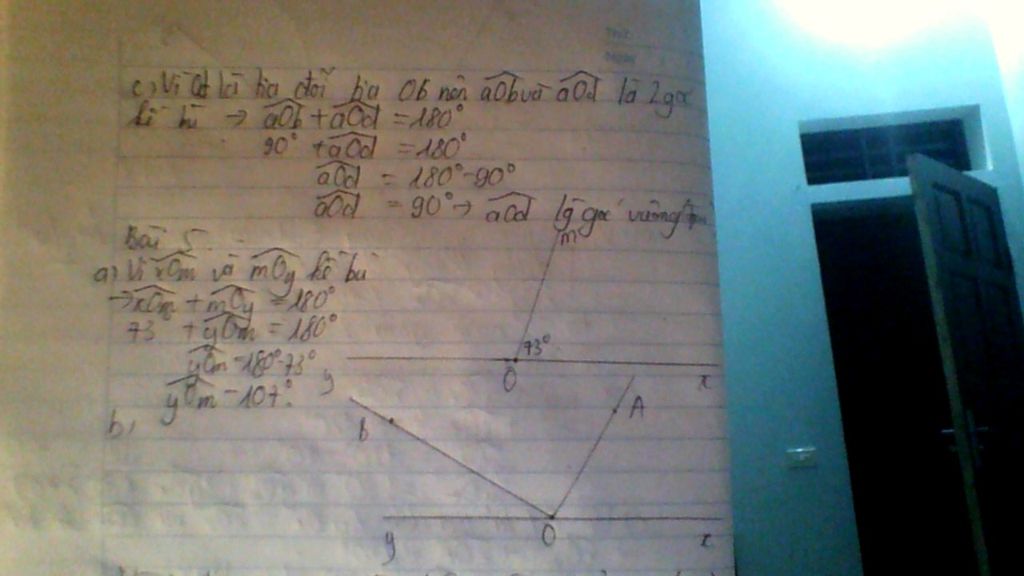 c, Vì Od là tia đối tia Ob nên aOb và aOd là 2 góc
kề bù → aOb + aOd = 180°
90° + aOd = 180°
aOd = 180° - 90°
aOd = 90° → aOd là góc vuông
Bài 5
a, Vì xOm và mOy kề bù
→ xOm + mOy = 180°
73° + yOm = 180°
yOm = 180° - 73°
yOm = 107°.
b,
m
73°
y O x
b A
y O x